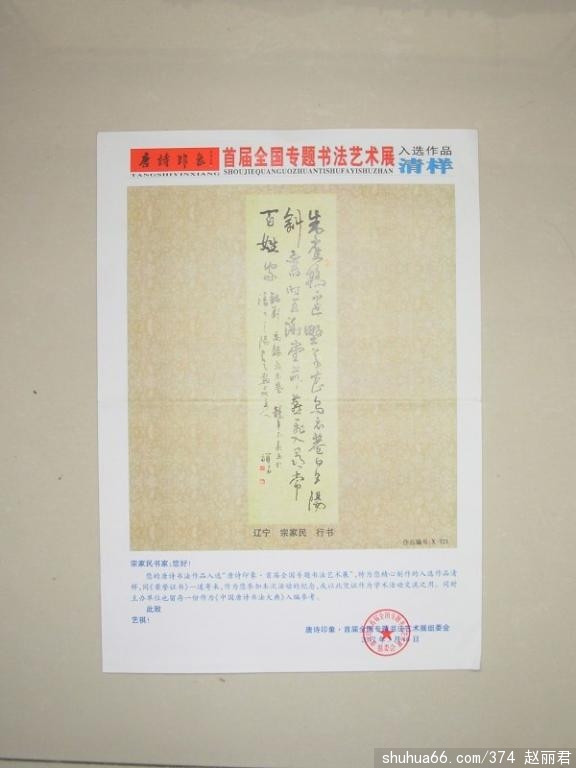 唐诗印象
TANGSHIYINXIANG
首届全国专题书法艺术展
SHOUJIEQUANGUOZHUANTISHUFAYISHUZHAN
入选作品
清样
朱雀桥边野草花乌衣巷口夕阳
斜旧时王谢堂前燕飞入寻常
百姓家
辽宁 宗家民 行书
作品编号:X
宗家民书家:您好!
您的唐诗书法作品入选“唐诗印象·首届全国专题书法艺术展”,特为您精心制作的入选作品清
样,同《荣誉证书》一道寄来,作为您参加本次活动的纪念,或以此凭证作为学术活动交流之用。同时
主办单位也留存一份作为《中国唐诗书法大典》入编参考。
此致
艺祺!
唐诗印象·首届全国专题书法艺术展组委会
shuhua66.com/374 赵丽君